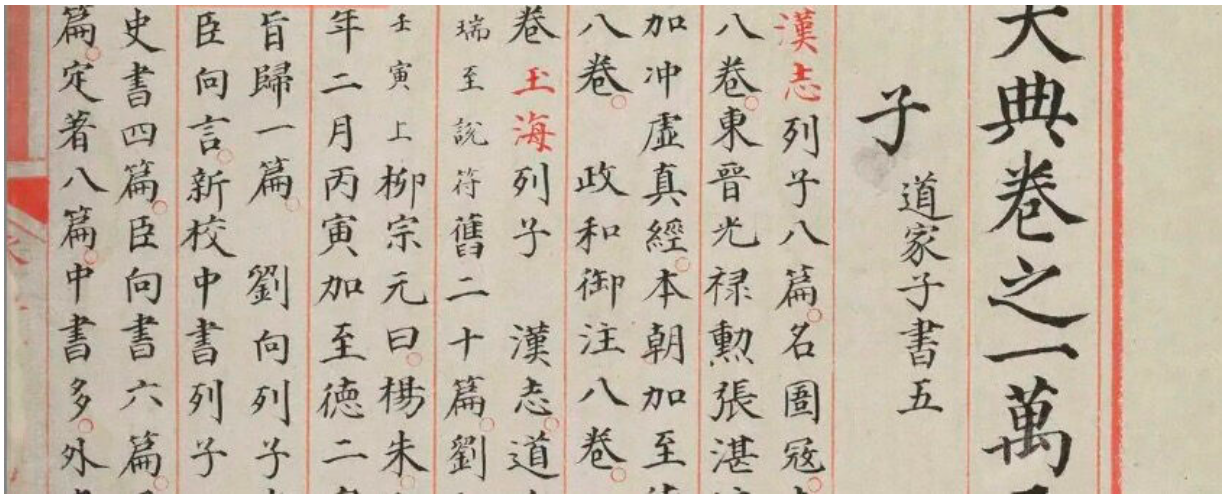 大典卷之一萬
子 道家子書五
漢志列子八篇。名圄寇
八卷。東晉光祿勲張湛
加冲虛真經。本朝加至
八卷。 政和御注八卷。
卷 玉海列子 漢志。道
瑞至說符舊二十篇。劉
壬寅上柳宗元曰。楊朱
年二月丙寅加至德二
旨歸一篇。 劉向列子
臣向言。新校中書列子
史書四篇。臣向書六篇。
篇。定著八篇。中書多。外